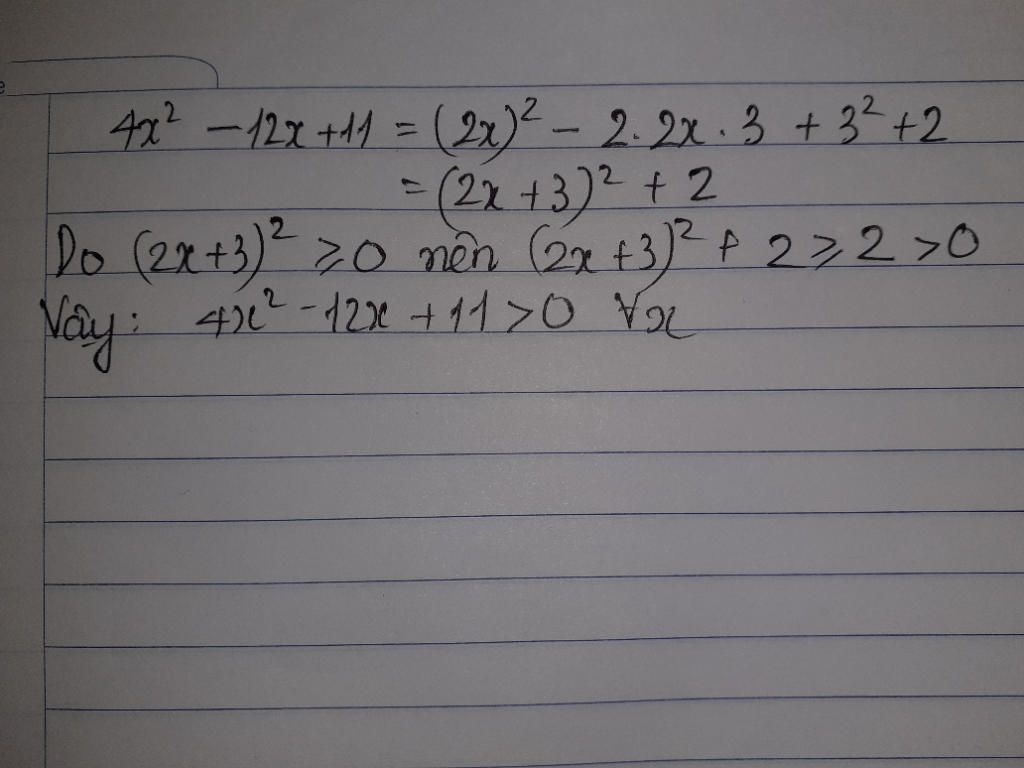 4x² - 12x + 11 = (2x)² - 2.2x.3 + 3² + 2
= (2x + 3)² + 2
Do (2x+3)² ⩾ 0 nên (2x+3)² + 2 ⩾ 2 > 0
Vậy: 4x² - 12x + 11 > 0 ∀x